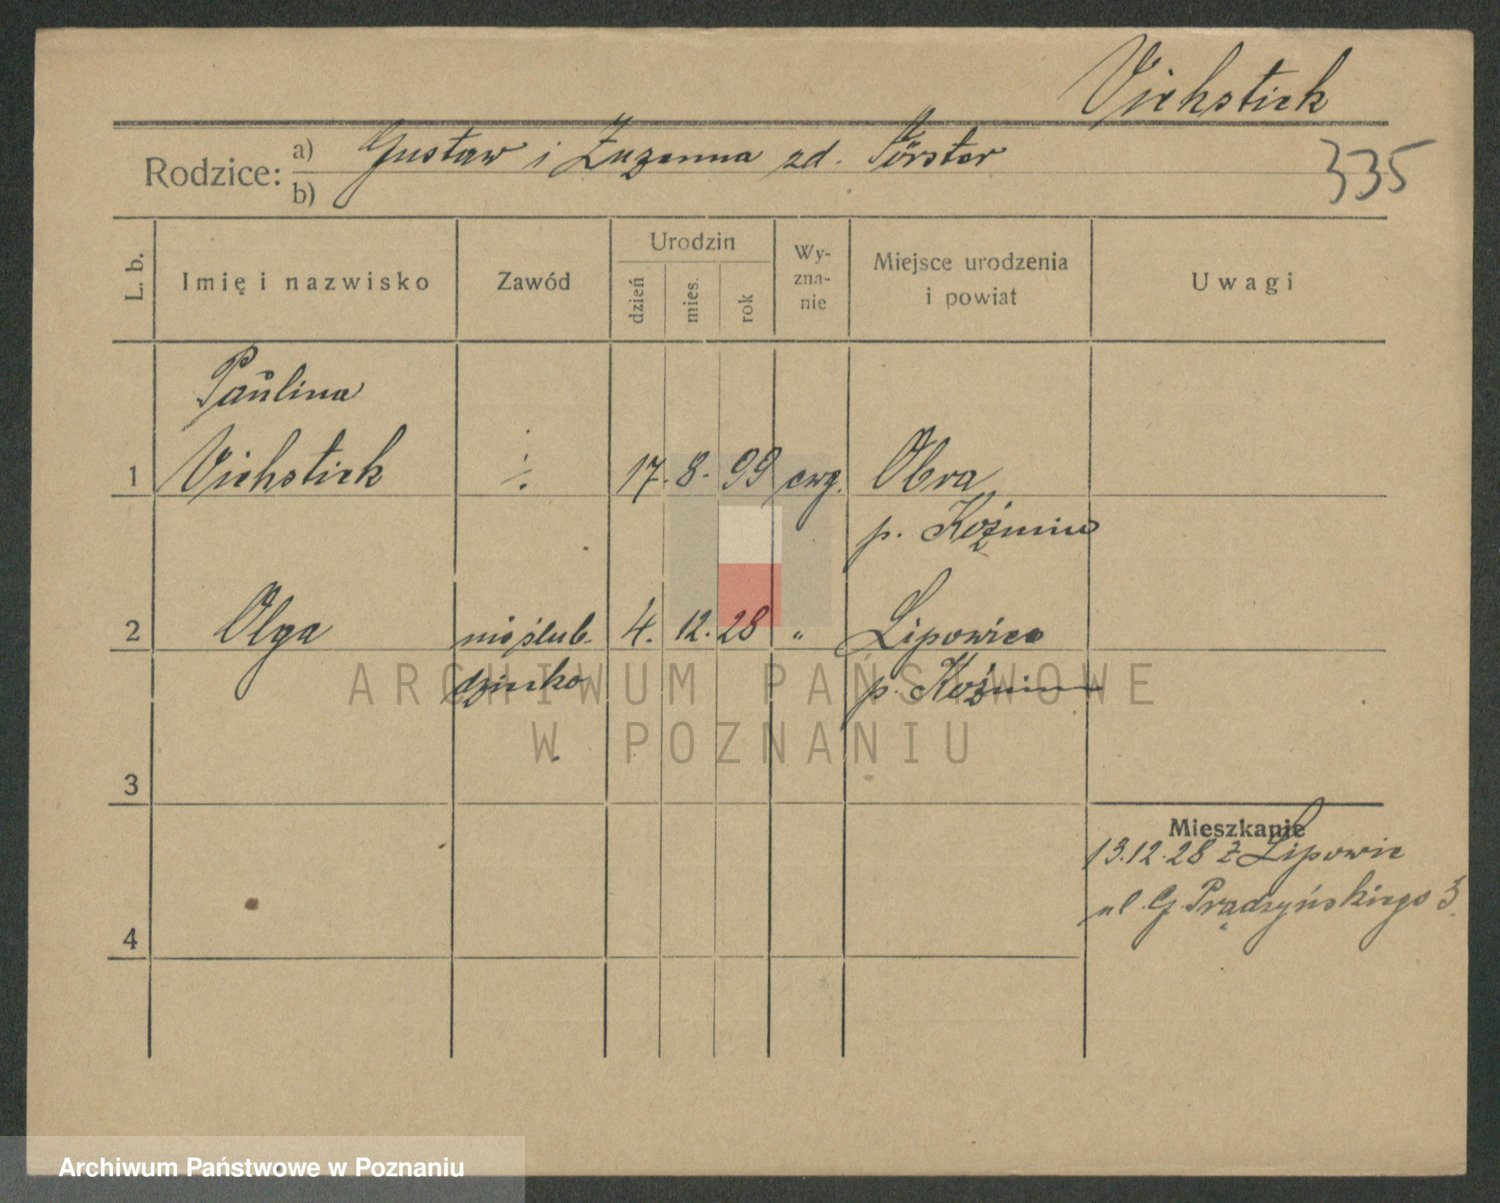 Viehstiek
Rodzice: a) Gustaw i Zuzanna zd. Förster
b)
335
L. b.
Imię i nazwisko
Zawód
Urodzin
dzień
mies.
rok
Wy-
zna-
nie
Miejsce urodzenia
i powiat
Uwagi
Paulina
1 Viehstiek ·/. 17. 8. 99 ewg. Obra
p. Koźmin
2 Olga nieślub. 4. 12. 28 " Lipowiec
dziecko p. Koźmin
3
4
Mieszkanie
13.12.28 z Lipowie
ul. G. Prądzyńskiego 3
ARCHIWUM PAŃSTWOWE
W POZNANIU
Archiwum Państwowe w Poznaniu